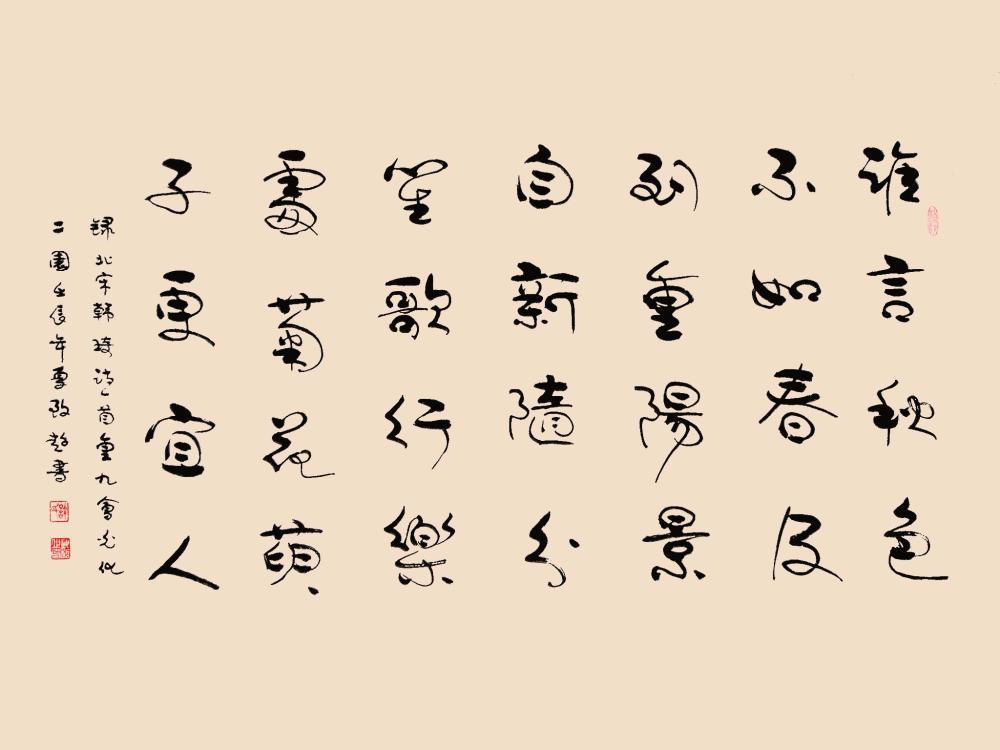 誰言秋色
不如春及
到重陽景
自新隨分
笙歌行樂
處菊花萸
子更宜人
録北宋韓琦詩一首重九會光化
二園壬辰年書